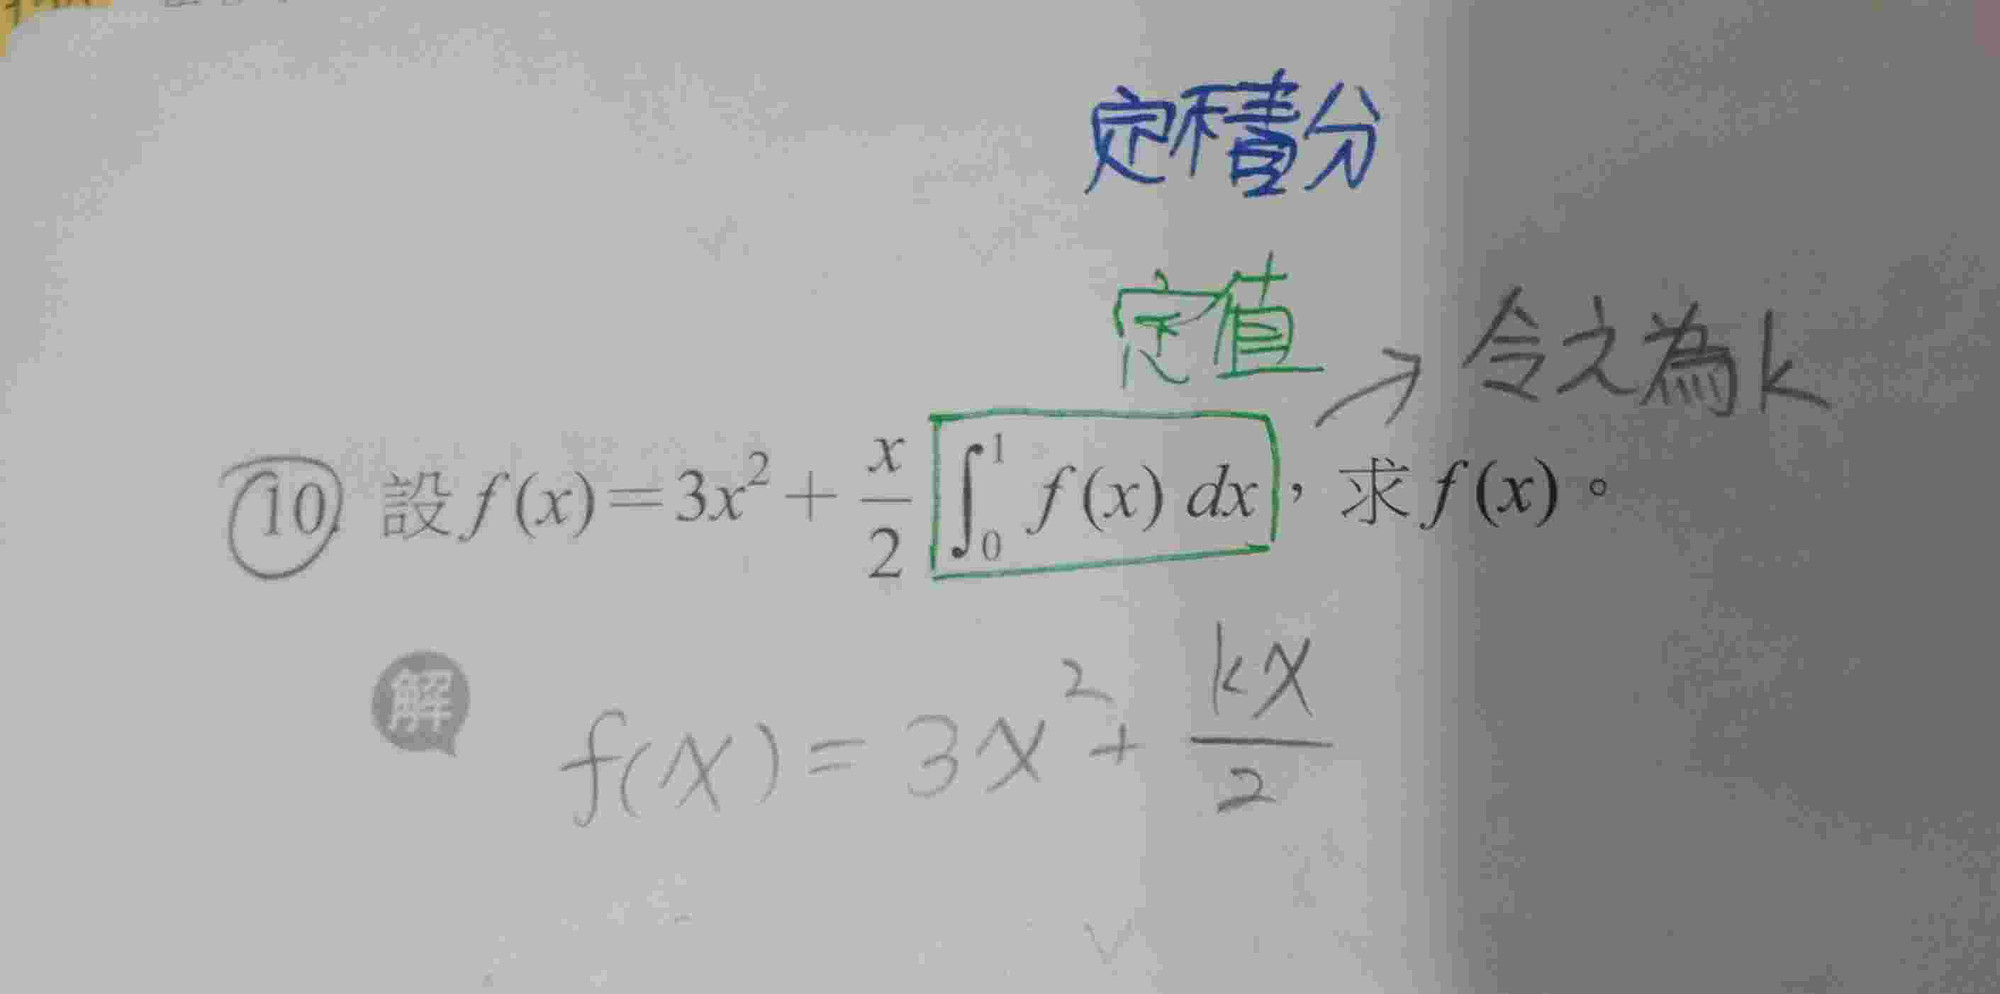 定積分
定值
令之為k
10. 設 f(x)=3x²+\frac{x}{2}\int_0^1 f(x) dx，求 f(x)。
解
f(x)=3x²+\frac{kx}{2}